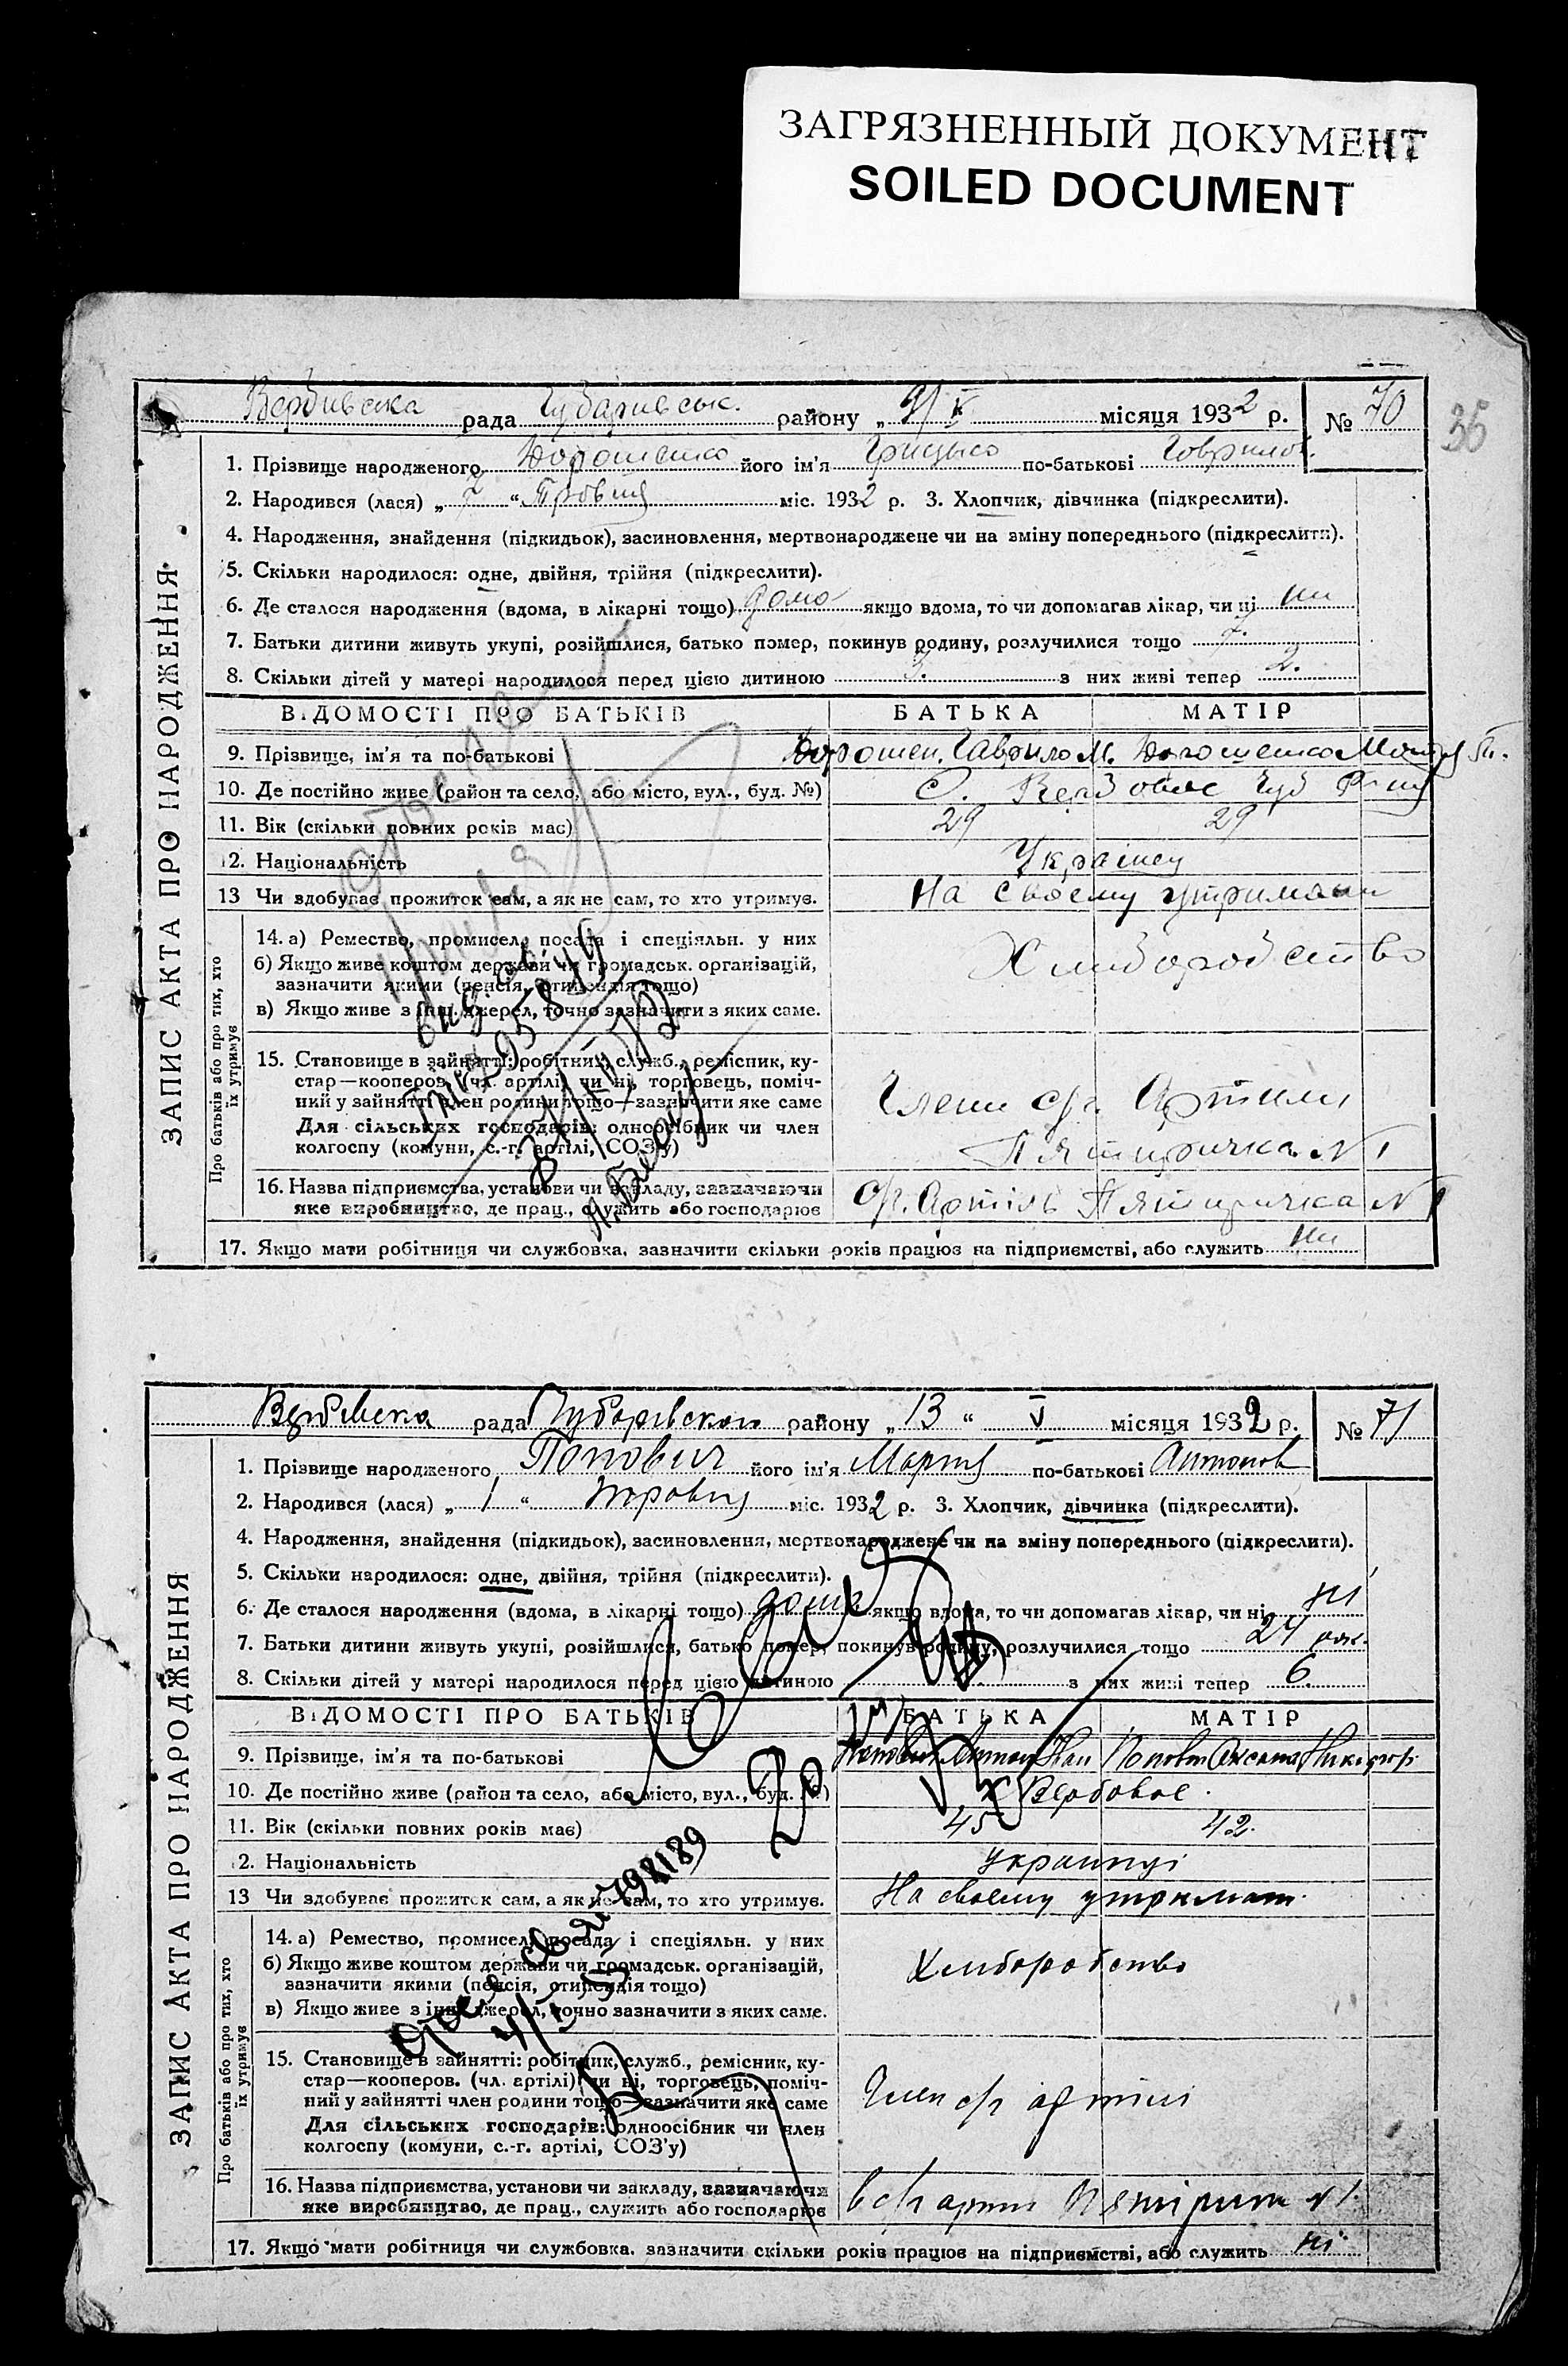 ЗАГРЯЗНЕННЫЙ ДОКУМЕНТ
SOILED DOCUMENT
35
ЗАПИС АКТА ПРО НАРОДЖЕННЯ
Вербивска рада Чубаривськ. району „ 9/V місяця 1932 р. № 70
1. Прізвище народженого Дорошенко його ім'я Грицько по-батькові Говрилов.
2. Народився (лася) „ 7 “ Тровня міс. 1932 р. 3. Хлопчик, дівчинка (підкреслити).
4. Народження, знайдення (підкидьок), засиновлення, мертвонароджене чи на зміну попереднього (підкреслити).
5. Скільки народилося: одне, двійня, трійня (підкреслити).
6. Де сталося народження (вдома, в лікарні тощо) дома якщо вдома, то чи допомагав лікар, чи ні ни
7. Батьки дитини живуть укупі, розійшлися, батько помер, покинув родину, розлучилися тощо 7.
8. Скільки дітей у матері народилося перед цією дитиною 3. з них живі тепер 2.
ВІДОМОСТІ ПРО БАТЬКІВ БАТЬКА МАТІР
9. Прізвище, ім'я та по-батькові Дорошен. Гаврило М. Дорошенко
10. Де постійно живе (район та село, або місто, вул., буд. №) С. Вербовое Чуб
11. Вік (скільки повних років має) 29 29
12. Національність Украінец
13 Чи здобуває прожиток сам, а як не сам, то хто утримує. На своему утриман
Про батьків або про тих, хто їх утримує
14. а) Ремество, промисел, посада і спеціяльн. у них
б) Якщо живе коштом держави чи громадськ. організацій,
зазначити якими (пенсія, стипендія тощо)
в) Якщо живе з інш. джерел, точно зазначити з яких саме.
Хлиборобство
15. Становище в зайнятті: робітник, служб., ремісник, ку-
стар—кооперов. (чл. артілі) чи ні, торговець, поміч-
ний у зайнятті член родини тощо—зазначити яке саме
Для сільських господарів: одноосібник чи член
колгоспу (комуни, с.-г. артілі, СОЗ'у)
Члени с/г. Артили
Пятиричка N 1
16. Назва підприємства, установи чи закладу, зазначаючи
яке виробництво, де прац., служить або господарює
С/г. Артіль Пятиричка N 1
17. Якщо мати робітниця чи службовка, зазначити скільки років працює на підприємстві, або служить ни
ЗАПИС АКТА ПРО НАРОДЖЕННЯ
Вербівска рада Чубарівского району „ 13 “ V місяця 1932 р. № 71
1. Прізвище народженого Попович його ім'я Мария по-батькові Антонов
2. Народився (лася) „ 1 “ тровня міс. 1932 р. 3. Хлопчик, дівчинка (підкреслити).
4. Народження, знайдення (підкидьок), засиновлення, мертвонароджене чи на зміну попереднього (підкреслити).
5. Скільки народилося: одне, двійня, трійня (підкреслити).
6. Де сталося народження (вдома, в лікарні тощо) дома якщо вдома, то чи допомагав лікар, чи ні ні
7. Батьки дитини живуть укупі, розійшлися, батько помер, покинув родину, розлучилися тощо 24
8. Скільки дітей у матері народилося перед цією дитиною з них живі тепер 6.
ВІДОМОСТІ ПРО БАТЬКІВ БАТЬКА МАТІР
9. Прізвище, ім'я та по-батькові Попович Антон Попович Оксана Никифор
10. Де постійно живе (район та село, або місто, вул., буд. №) Вербовое.
11. Вік (скільки повних років має) 45 42.
12. Національність украинці
13 Чи здобуває прожиток сам, а як не сам, то хто утримує. На своему утриман.
Про батьків або про тих, хто їх утримує
14. а) Ремество, промисел, посада і спеціяльн. у них
б) Якщо живе коштом держави чи громадськ. організацій,
зазначити якими (пенсія, стипендія тощо)
в) Якщо живе з інш. джерел, точно зазначити з яких саме.
Хлиборобство
15. Становище в зайнятті: робітник, служб., ремісник, ку-
стар—кооперов. (чл. артілі) чи ні, торговець, поміч-
ний у зайнятті член родини тощо—зазначити яке саме
Для сільських господарів: одноосібник чи член
колгоспу (комуни, с.-г. артілі, СОЗ'у)
Член с/г артілі
16. Назва підприємства, установи чи закладу, зазначаючи
яке виробництво, де прац., служить або господарює
в с/г артил N 1.
17. Якщо мати робітниця чи службовка, зазначити скільки років працює на підприємстві, або служить ні